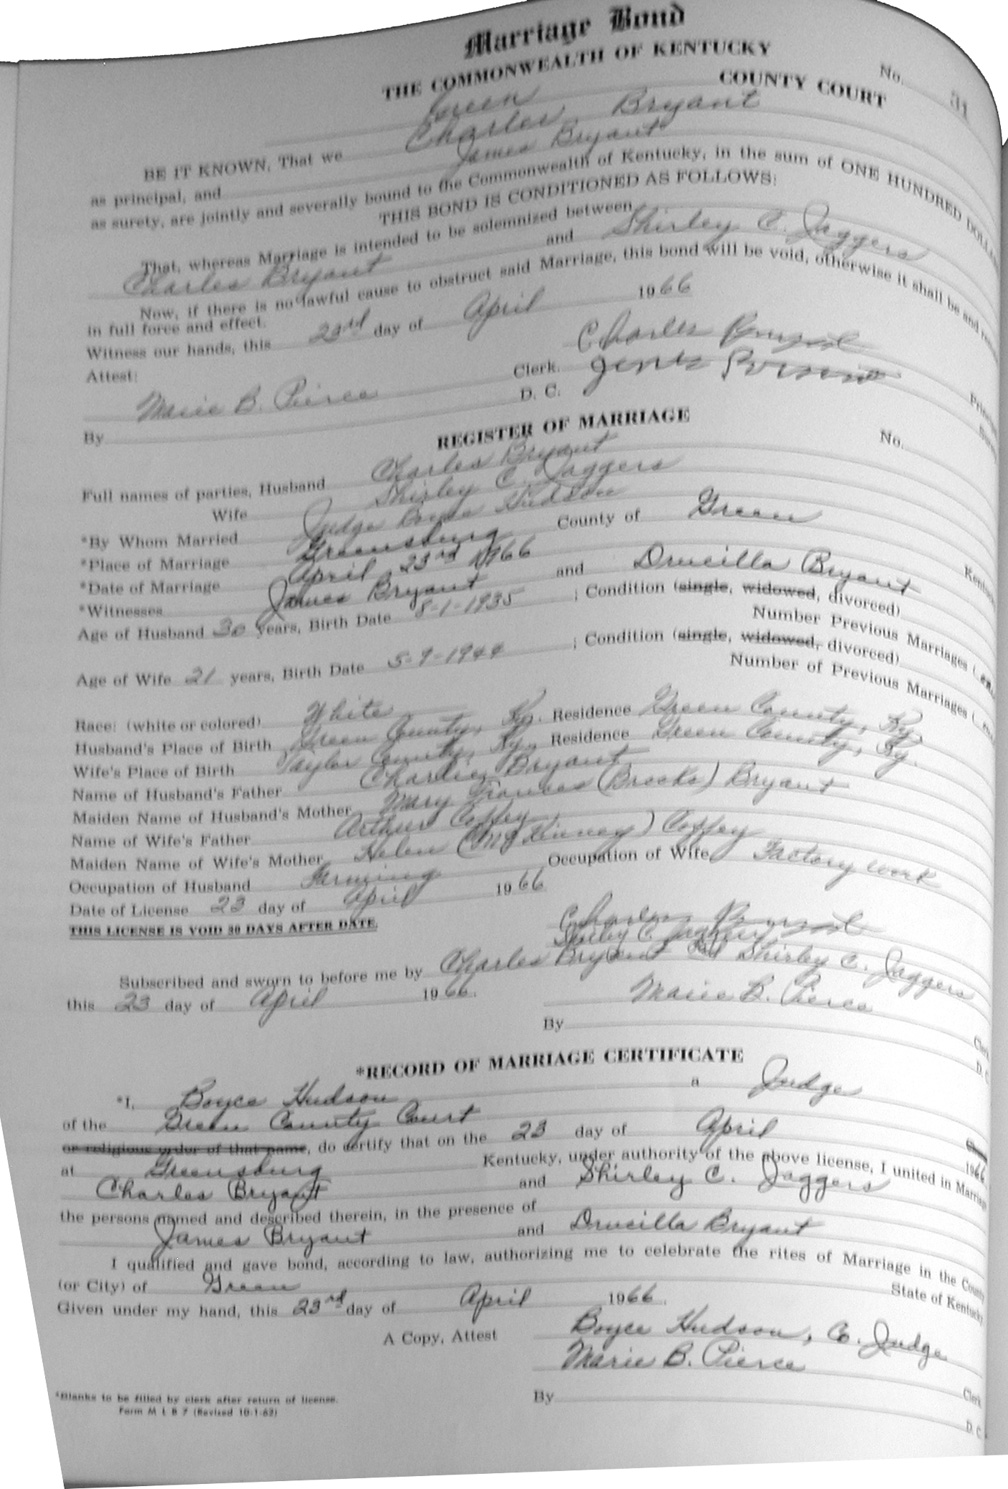 Marriage Bond
THE COMMONWEALTH OF KENTUCKY
No. 31
Green COUNTY COURT
BE IT KNOWN, That we Charles Bryant
as principal, and James Bryant
as surety, are jointly and severally bound to the Commonwealth of Kentucky, in the sum of ONE HUNDRED
THIS BOND IS CONDITIONED AS FOLLOWS:
That, whereas Marriage is intended to be solemnized between
Charles Bryant and Shirley C. Jaggers
Now, if there is no lawful cause to obstruct said Marriage, this bond will be void, otherwise it shall be and
in full force and effect.
Witness our hands, this 23rd day of April 1966
Attest: Charles Bryant
Marie B. Pierce Clerk. James Bryant
By D. C.
REGISTER OF MARRIAGE
No.
Full names of parties, Husband Charles Bryant
Wife Shirley C. Jaggers
*By Whom Married Judge Boyce Hudson
*Place of Marriage Greensburg County of Green
*Date of Marriage April 23rd 1966
*Witnesses James Bryant and Drucilla Bryant
Age of Husband 30 years, Birth Date 8-1-1935; Condition (single, widowed, divorced)
Number Previous Marriages (
Age of Wife 21 years, Birth Date 5-9-1944; Condition (single, widowed, divorced)
Number of Previous Marriages (
Race: (white or colored) White
Husband's Place of Birth Green County, Ky. Residence Green County, Ky.
Wife's Place of Birth Taylor County, Ky. Residence Green County, Ky.
Name of Husband's Father Charlie Bryant
Maiden Name of Husband's Mother Mary Frances (Brooks) Bryant
Name of Wife's Father Arthur Coffey
Maiden Name of Wife's Mother Helen (McKinney) Coffey
Occupation of Husband Farming Occupation of Wife Factory work
Date of License 23 day of April 1966
THIS LICENSE IS VOID 30 DAYS AFTER DATE.
Charles Bryant
Shirley C. Jaggers
Subscribed and sworn to before me by Charles Bryant and Shirley C. Jaggers
this 23 day of April 1966. Marie B. Pierce
By D. C.
*RECORD OF MARRIAGE CERTIFICATE
*I, Boyce Hudson a Judge
of the Green County Court
or religious order of that name, do certify that on the 23 day of April 1966
at Greensburg Kentucky, under authority of the above license, I united in Marriage
Charles Bryant and Shirley C. Jaggers
the persons named and described therein, in the presence of
James Bryant and Drucilla Bryant
I qualified and gave bond, according to law, authorizing me to celebrate the rites of Marriage in the County
(or City) of Green State of Kentucky
Given under my hand, this 23rd day of April 1966.
Boyce Hudson, Co. Judge
A Copy, Attest Marie B. Pierce Clerk
By D. C.
*Blanks to be filled by clerk after return of license.
Form M L B 7 (Revised 10-1-62)